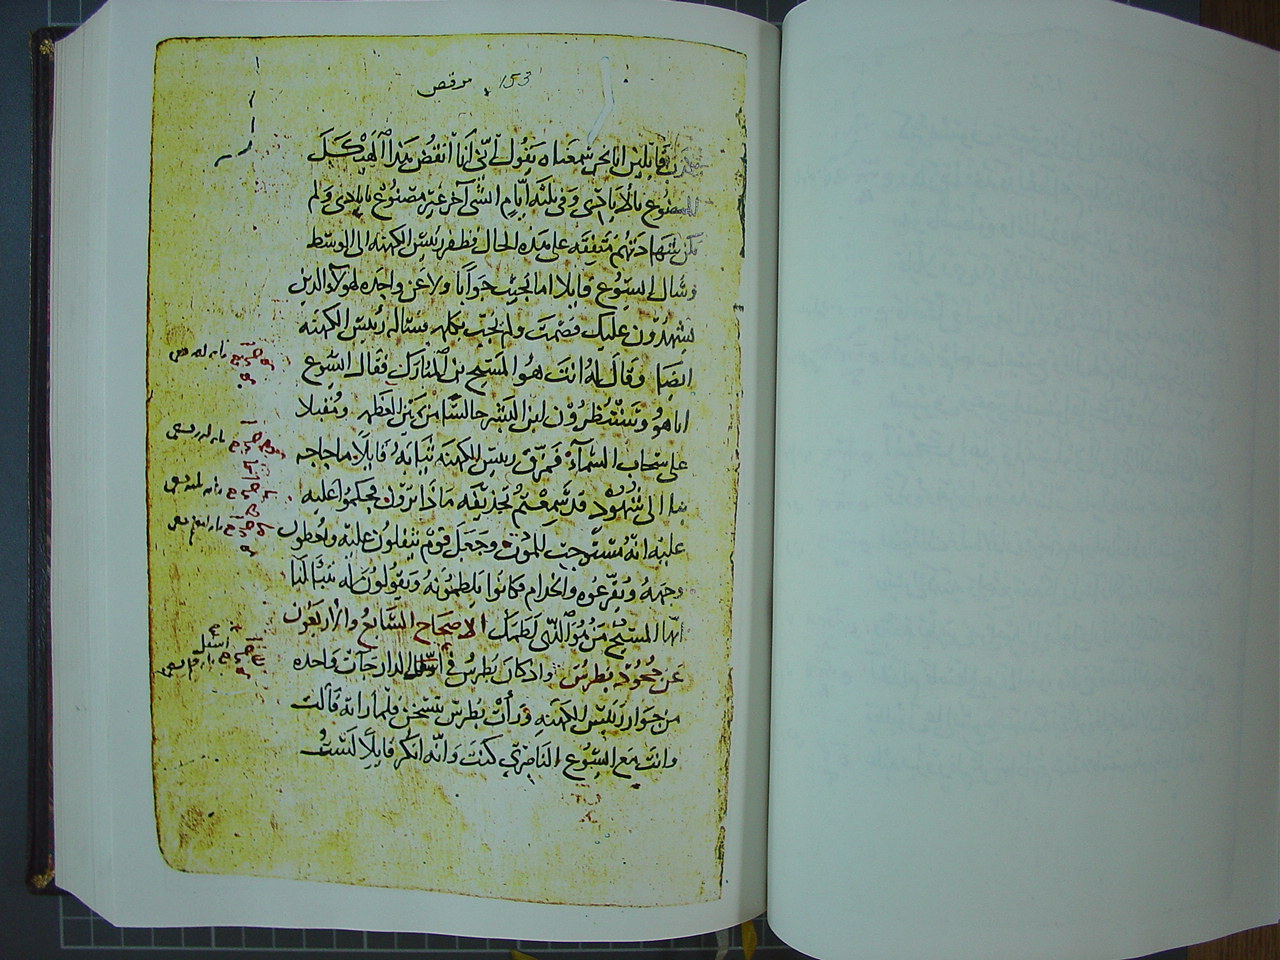 153 مرقص
قايلين اننا نحن سمعناه يقول انّني اَنا انقُض هذا الهَيْكَل
المصنوع بالأيادي وفي ثلثة ايّامٍ انشي آخر غير مصنوع بايادي ولم
تكن شهادتهُم متّفِقَه على هذه الحال فطفر رييس الكهنه الى الوسط
وسال السيّوع قايلا اما تجيب جَوابا ولا عن واحده لهولاء الذين
يشهدُون عليك فصَمَت ولم يُجب بكلمه فساله رييس الكهنه
ايضا وقَالَ له انتَ هُوَ المَسيح بن المُبارَك فقال السيّوع
انا هُو وستَنْظُرُوْن لبن البَشر جالسًا من يمين العظمه ومُقبلا
على سحاب السّمآءْ فمزّق رييس الكهنة ثيابَهُ قايِلًا ما حاجه
بنا الى شُهُوْد قد سَمِعْتُم تجذيفَه مَاذا ترَون فحكموا عليه
عليه انّهُ مستوجب للموْت وجَعَل قومٌ يتفلون عليه ويغطون
وجهَهُ ويُقرّعُوه والخدام فكانوا يلطمُونهُ ويَقُولوُن له تنبّا لنا
ايّها المسيح مَن هُو الّذي لَطَمك الاصحاح السَابعُ والاربَعُون
عَن جُحُوْد بطرسَ واد كان بَطرسُ في اسفل الدار جآت واحده
من جوار رَييس الكهَنه ورأتْ بُطرس يتسَخن فلما راته قَالت
وانتَ مَع السيّوع النَاصري كنتَ وَانّه انكر قايِلًا لَسْتُ
اسفل